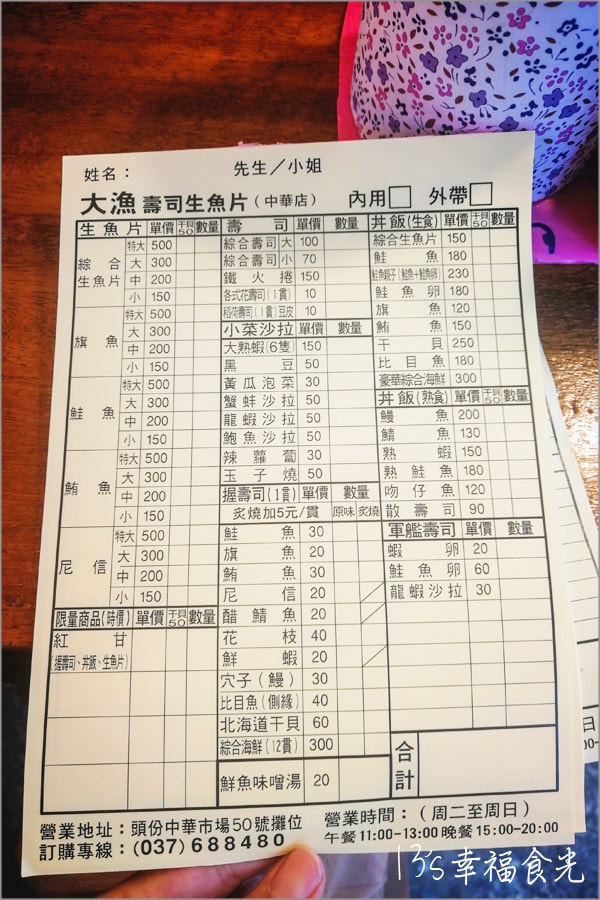 姓名： 先生／小姐
大漁壽司生魚片（中華店） 內用□ 外帶□
生魚片 單價 干貝50 數量
綜合生魚片 特大 500
大 300
中 200
小 150
旗魚 特大 500
大 300
中 200
小 150
鮭魚 特大 500
大 300
中 200
小 150
鮪魚 特大 500
大 300
中 200
小 150
尼信 特大 500
大 300
中 200
小 150
限量商品(時價) 單價 干貝50 數量
紅甘
(握壽司、丼飯、生魚片)
壽司 單價 數量
綜合壽司 大 100
綜合壽司 小 70
鐵火捲 150
各式花壽司(1貫) 10
稻荷壽司(1貫)豆皮 10
小菜沙拉 單價 數量
大熟蝦(6隻) 150
黑豆 50
黃瓜泡菜 30
蟹蚌沙拉 50
龍蝦沙拉 50
鮑魚沙拉 50
辣蘿蔔 30
玉子燒 50
握壽司(1貫) 單價 數量
炙燒加5元/貫 原味 炙燒
鮭魚 30
旗魚 20
鮪魚 30
尼信 20
醋鯖魚 20
花枝 40
鮮蝦 20
穴子(鰻) 30
比目魚(側緣) 40
北海道干貝 60
綜合海鮮(12貫) 300
鮮魚味噌湯 20
丼飯(生食) 單價 干貝50 數量
綜合生魚片 150
鮭魚 180
鮭魚親子(鮭魚+鮭魚卵) 230
鮭魚卵 180
旗魚 120
鮪魚 150
干貝 250
比目魚 180
豪華綜合海鮮 300
丼飯(熟食) 單價 干貝50 數量
鰻魚 200
鯖魚 130
熟蝦 150
熟鮭魚 180
吻仔魚 120
散壽司 90
軍艦壽司 單價 數量
蝦卵 20
鮭魚卵 60
龍蝦沙拉 30
合計
營業地址：頭份中華市場50號攤位
訂購專線：(037)688480
營業時間：（周二至周日）
午餐 11:00-13:00 晚餐 15:00-20:00
13's幸福食光